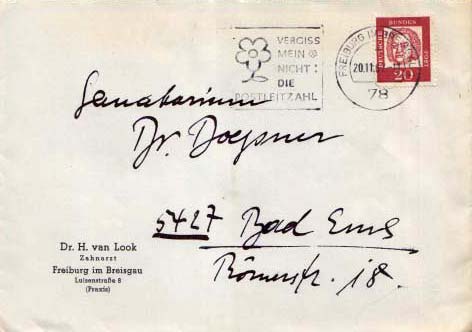 VERGISS
MEIN
NICHT:
DIE
POSTLEITZAHL
FREIBURG IM BR
20.11.6
78
DEUTSCHE BUNDES
20
Sanatorium
Dr.
5427 Bad Ems
Römerstr. 18.
Dr. H. van Look
Zahnarzt
Freiburg im Breisgau
Luisenstraße 8
(Praxis)